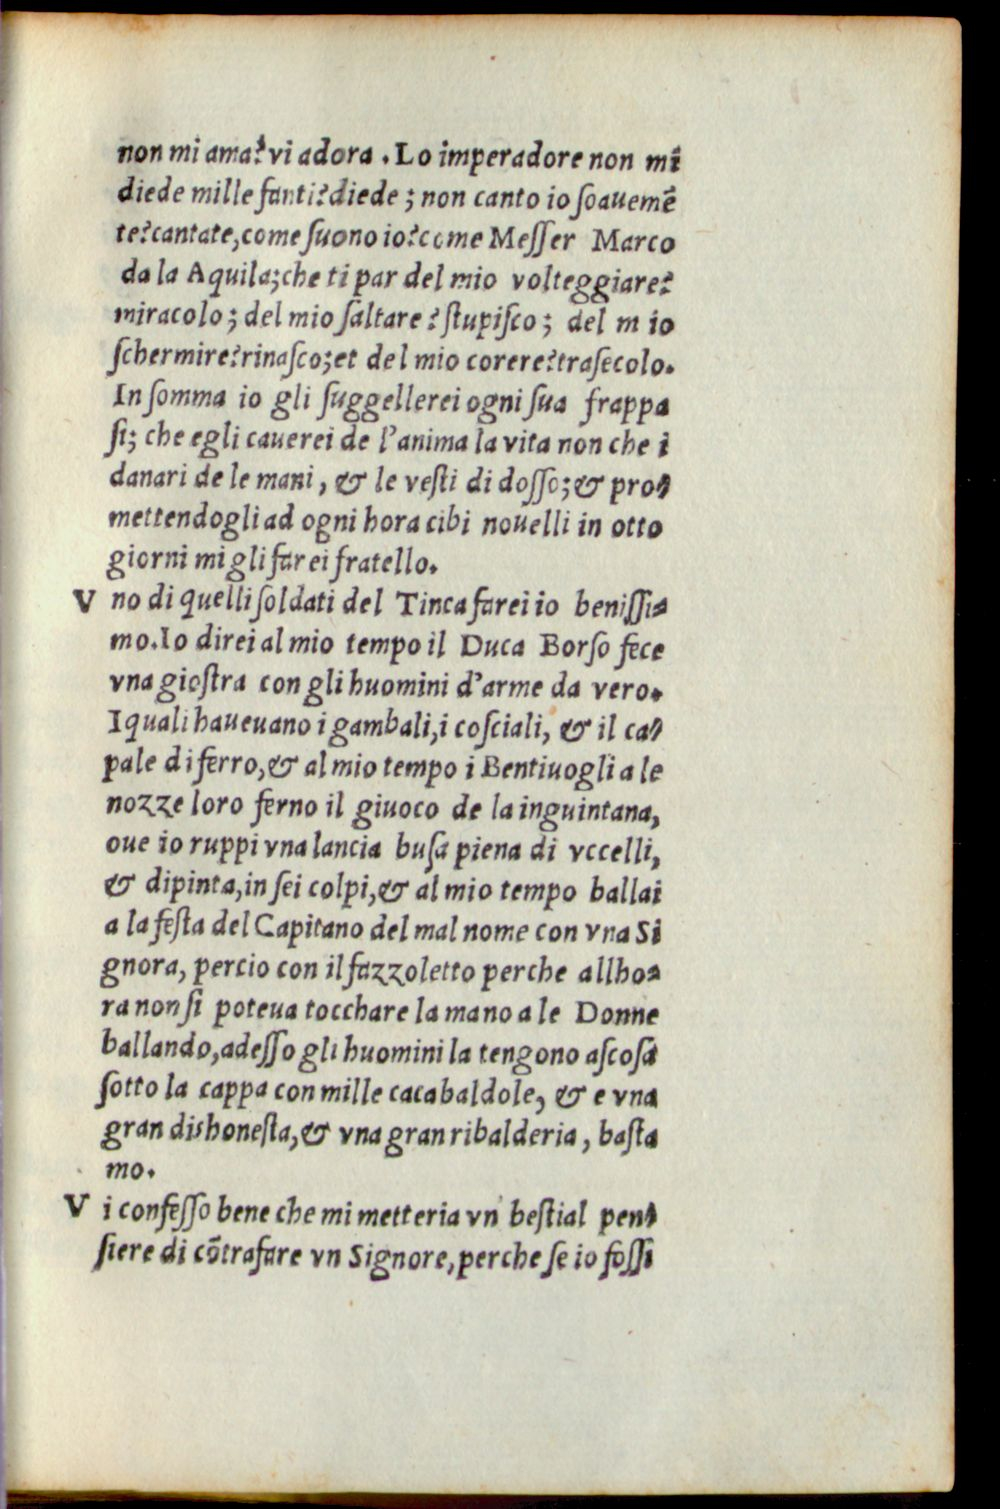 non mi ama? vi adora . Lo imperadore non mi
diede mille fanti? diede ; non canto io ſoauemẽ
te? cantate, come ſuono io? come Meſſer Marco
da la Aquila; che ti par del mio volteggiare?
miracolo ; del mio ſaltare ? ſtupiſco ; del m io
ſchermire? rinaſco; et del mio corere? traſecolo.
In ſomma io gli ſuggellerei ogni ſua frappa
ſi; che egli cauerei de l'anima la vita non che i
danari de le mani , & le veſti di doſſo; & pro-
mettendogli ad ogni hora cibi nouelli in otto
giorni mi gli farei fratello.
V no di quelli ſoldati del Tinca farei io beniſſi-
mo. Io direi al mio tempo il Duca Borſo fece
vna gioſtra con gli huomini d'arme da vero.
I quali haueuano i gambali, i coſciali, & il ca-
pale di ferro, & al mio tempo i Bentiuogli a le
nozze loro ferno il giuoco de la inguintana,
oue io ruppi vna lancia buſa piena di vccelli,
& dipinta, in ſei colpi, & al mio tempo ballai
a la feſta del Capitano del mal nome con vna Si
gnora, percio con il fazzoletto perche allho-
ra non ſi poteua tocchare la mano a le Donne
ballando, adeſſo gli huomini la tengono aſcoſa
ſotto la cappa con mille cacabaldole, & e vna
gran dishoneſta, & vna gran ribalderia , baſta
mo.
V i confeſſo bene che mi metteria vn beſtial pen-
ſiere di cõtrafare vn Signore, perche ſe io foſſi